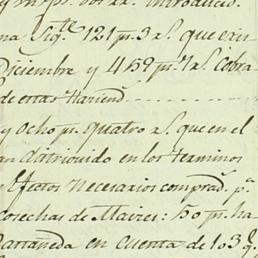 y rn. ps. por rr. introducid.
na Sigte 121 ps. 3 rs. que exis
Diciembre y 459 ps. 7 rs. cobra
de estas Haciend
y ocho ps. quatro rs. que en el
an distribuido en los terminos
y Efectos Necesarios comprad. pa
cosechas de Maizes: 50 ps. ha
Castañeda en cuenta de 103 q.